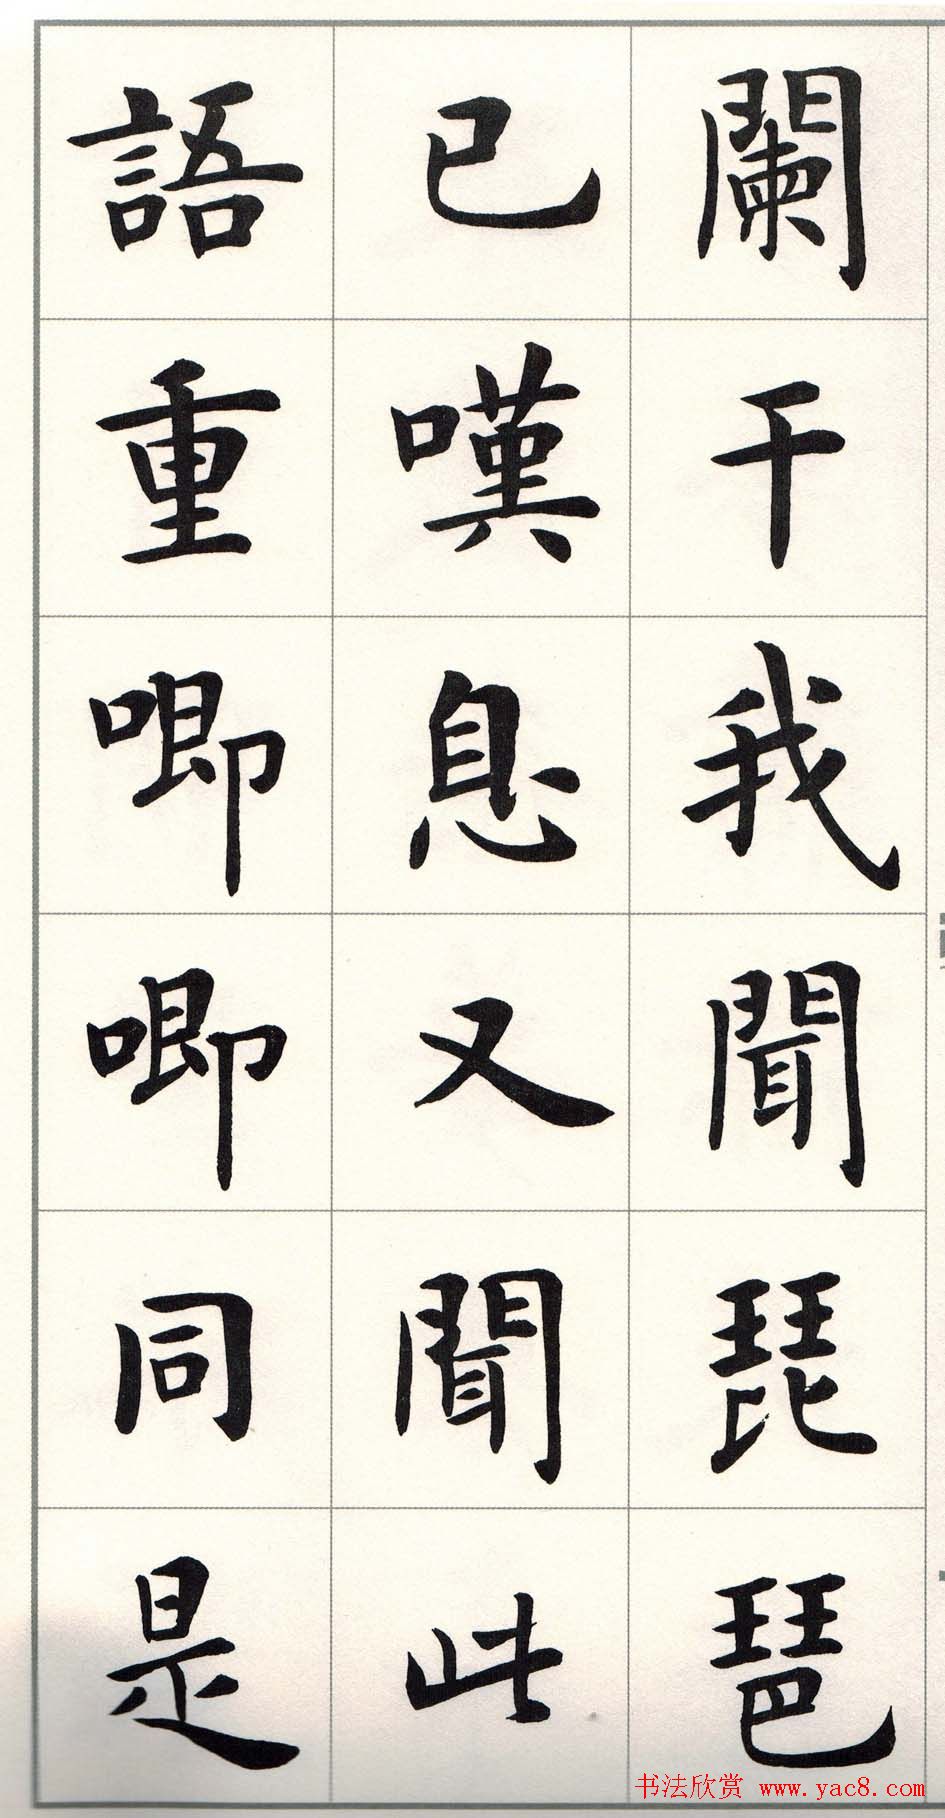 闌干我聞琵琶
已嘆息又聞此
語重唧唧同是
书法欣赏 www.yac8.com